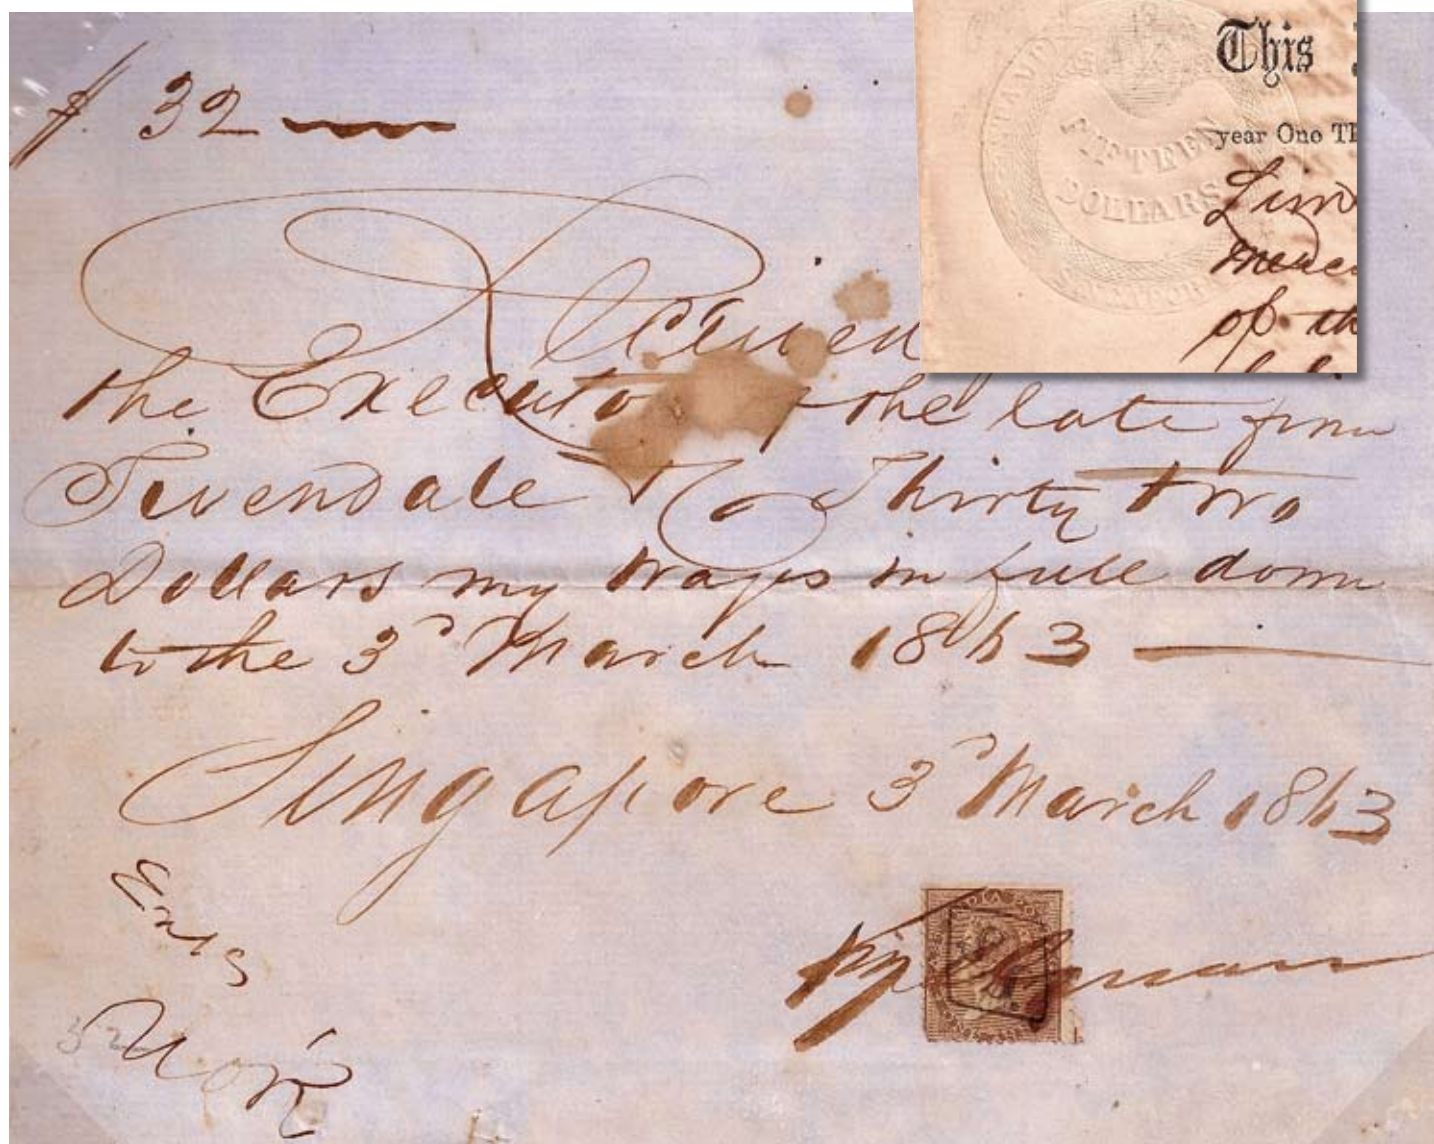 $ 32
Received
the Executo the late firm
Tivendale & Co Thirty two
Dollars my wages in full down
to the 3d March 1863
Singapore 3d March 1863
32
This
year One Th
FIFTEEN
DOLLARS
Lim
of th